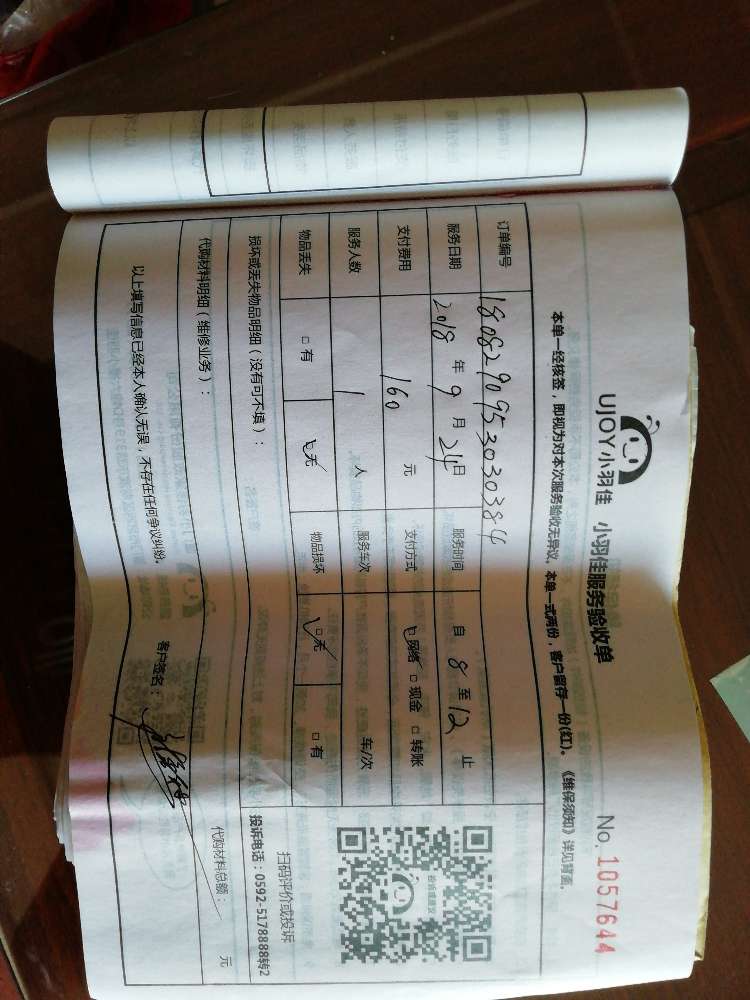 UJOY小羽佳 小羽佳服务验收单 No. 1057644
本单一经核签，即视为对本次服务验收无异议。本单一式两份，客户留存一份(红)。《维保须知》详见背面。
订单编号 180829095303030384
服务日期 2018 年 9 月 24 日 服务时间 自 8 至 12 止
支付费用 160 元 支付方式 ☑网络 □现金 □转账
服务人数 1 人 服务车次 车/次
物品丢失 □有 ☑无 物品损坏 ☑无 □有
投诉或建议
扫码评价或投诉
投诉电话：0592-5178888转2
损坏或丢失物品明细（没有可不填）：
代购材料明细（维修业务）： 代购材料总额： 元
以上填写信息已经本人确认无误，不存在任何争议纠纷。 客户签名：